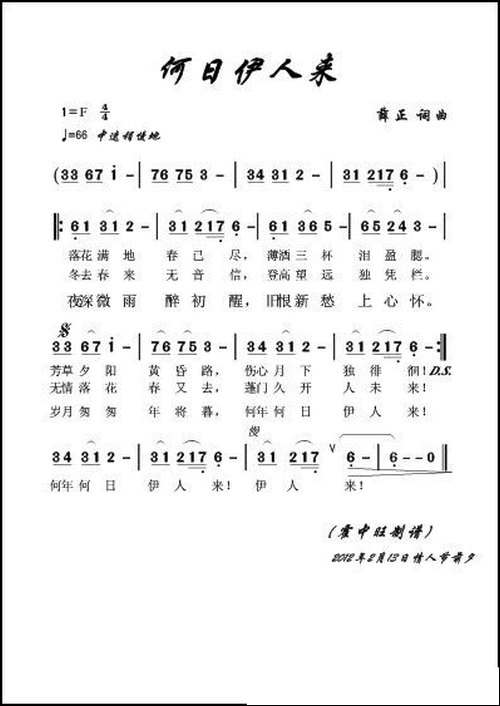 何日伊人来
1=F 4/4
薛正 词曲
♩=66 中速稍慢地
(33 67 i - | 76 75 3 - | 34 31 2 - | 31 217 6 - )
‖: 61 31 2 - | 31 217 6 - | 61 36 5 - | 65 243 - |
落花满地 春已尽，薄酒三杯 泪盈腮。
冬去春来 无音信，登高望远 独凭栏。
夜深微雨 醉初醒，旧恨新愁 上心怀。
33 67 i - | 76 75 3 - | 34 31 2 - | 31 217 6 - :‖
芳草夕阳 黄昏路，伤心月下 独徘徊！D.S.
无情落花 春又去，蓬门久开 人未来！
岁月匆匆 年将暮，何年何日 伊人来！
慢
34 31 2 - | 31 217 6 - | 31 217 | ∨ 6 - - - | 6 - - 0 ‖
何年何日 伊人来！伊人 来！
(霍中旺制谱)
2012年2月13日情人节前夕